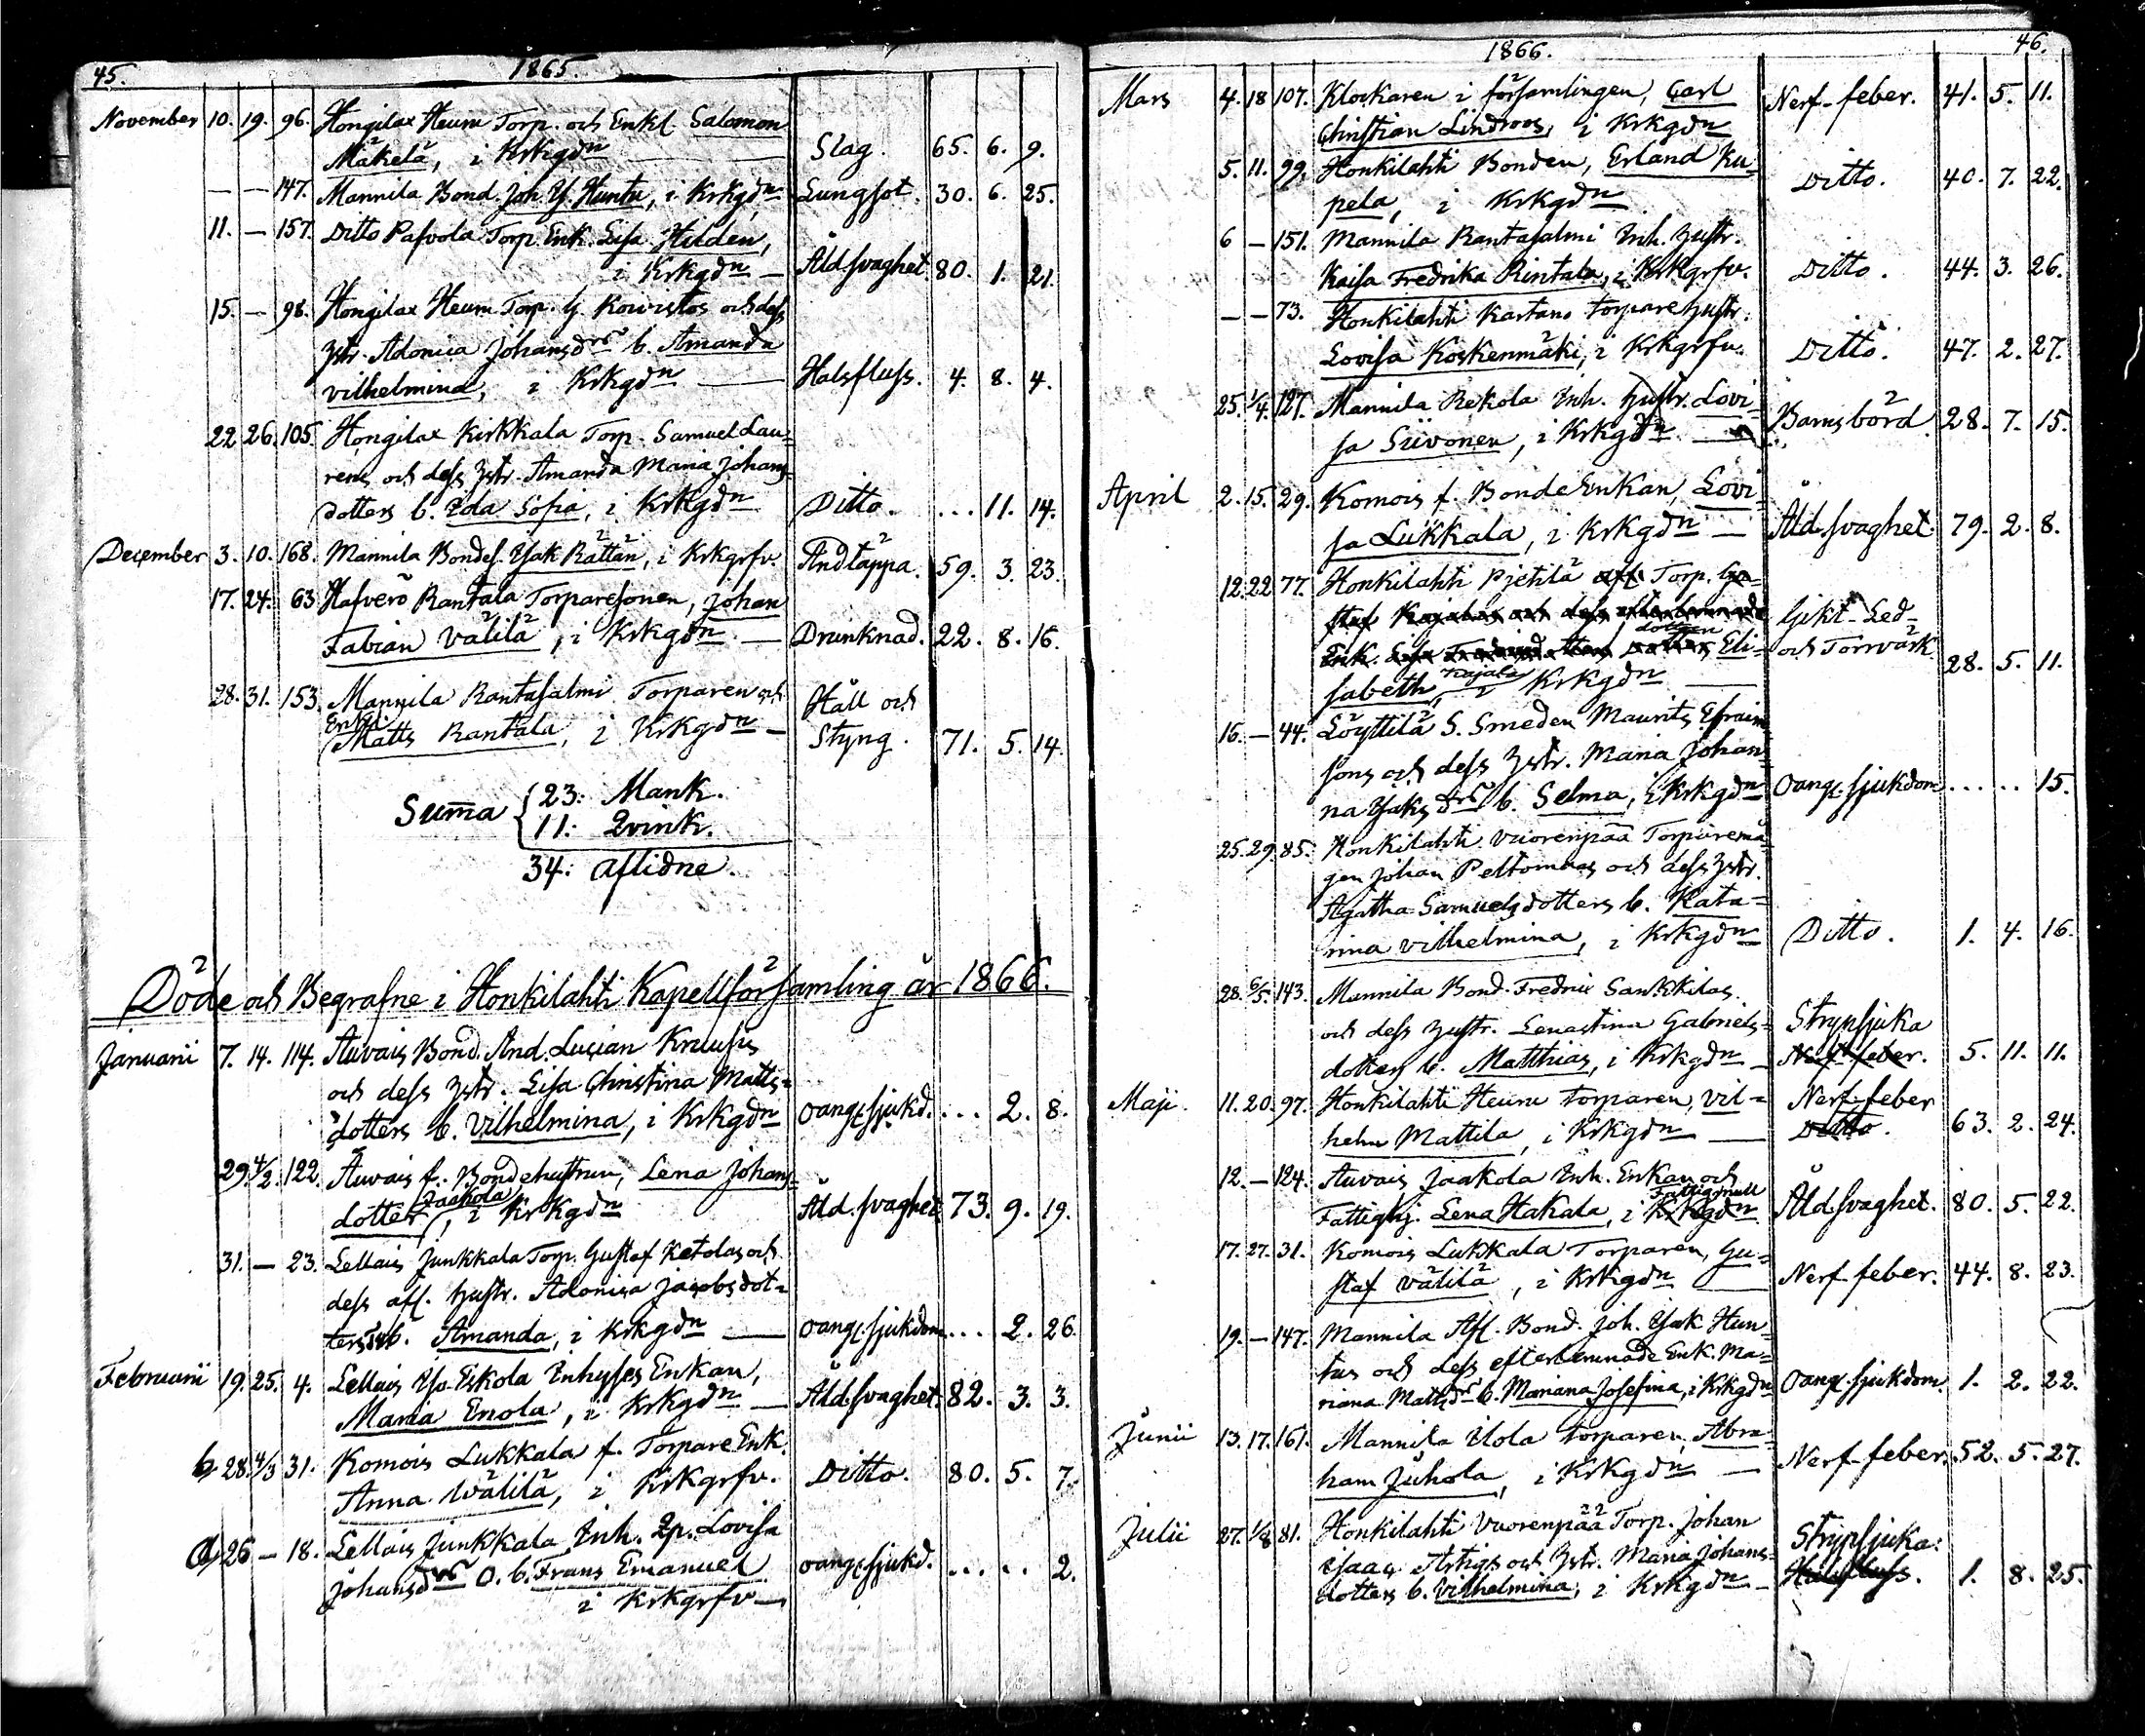 45.
1865.
November 10. 19. 96. Hongilax Heuru Torp. och Enkl. Salomon
Mäkelä, i Krkgdn Slag. 65. 6. 9.
— — 147. Mannila Bond. Joh. Y. Huntu, i Krkgdn Lungsot. 30. 6. 25.
11. — 157. Ditto Pafvola Torp. Enk. Lisa Hilden,
i Krkgdn — Åld.svaghet. 80. 1. 21.
15. — 98. Hongilax Heuru Torp. G. Kowistos och dess
Hstr. Adonica Johansdrs b. Amanda
Vilhelmina, i Krkgdn — Halsfluss. 4. 8. 4.
22. 26. 105. Hongilax Kirkkala Torp. Samuel Lau-
rens och dess Hstr. Amanda Maria Johans-
dotters b. Eda Sofia, i Krkgdn Ditto. ... 11. 14.
December 3. 10. 168. Mannila Bondes. Isak Rättän, i Krkgrfv. Andtäppa. 59. 3. 23.
17. 24. 63. Hafverö Rantala Torparesonen, Johan
Fabian Välilä, i Krkgdn — Drunknad. 22. 8. 16.
28. 31. 153. Mannila Rantasalmi Torparen och
Enkl. Matts Rantala, i Krkgdn — Håll och Styng. 71. 5. 14.
Suma { 23: Mank.
11: Qvink.
34: Aflidne.
Döde och Begrafne i Honkilahti Kapellförsamling år 1866.
Januarii 7. 14. 114. Auvais Bond. And. Lucian Kruusus
och dess Hstr. Lisa Christina Matts-
dotters b. Vilhelmina, i Krkgdn oang. sjukd. ... 2. 8.
29. 4/2. 122. Auvais f. Bondehustrun, Lena Johans-
dotter Jaakola, i Krkgdn Åld.svaghet 73. 9. 19.
31. — 23. Lellais Junkkala Torp. Gustaf Ketolas och
dess afl. Hustr. Adonica Jacobsdot-
ters b. Amanda, i Krkgdn — oang. sjukdom ... 2. 26.
Februarii 19. 25. 4. Lellais Yso-Eskola Inhyses Enkan,
Maria Enola, i Krkgdn — Åld.svaghet. 82. 3. 3.
b 28. 4/3 31. Komois Lukkala f. Torpare Enk.
Anna Wälilä, i Krkgrfv. Ditto. 80. 5. 7.
a 26 — 18. Lellais Junkkala Inh. Qp. Lovisa
Johansdrs O. b. Frans Emanuel
i Krkgrfv — oang. sjukd. .... 2.
1866.
46.
Mars 4. 18 107. Klockaren i församlingen, Carl
Christian Lindroos, i Krkgdn Nerf-feber. 41. 5. 11.
5. 11. 99. Honkilahti Bonden, Erland Ku-
pela, i Krkgdn Ditto. 40. 7. 22.
6 — 151. Mannila Rantasalmi Inh. Hustr.
Kaisa Fredrika Rintala, i Krkgrfv. Ditto. 44. 3. 26.
— — 73. Honkilahti Kartano Torpare Hustr.
Lovisa Koskenmäki, i Krkgrfv. Ditto. 47. 2. 27.
25. 1/4. 127. Mannila Rekola Inh. Hustr. Lovi-
sa Siivonen, i Krkgdn — Barnsbörd. 28. 7. 15.
April 2. 15. 29. Komois f. Bonde Enkan, Lovi-
sa Lukkala, i Krkgdn — Åld.svaghet. 79. 2. 8.
12. 22 77. Honkilahti Pjetilä afl. Torp. Gu-
staf Kajalas och dess efterlemnade
Enk. Lisa dottren Eli-
sabeth Kajala, i Krkgdn — Gikt-Led- och Torrvärk 28. 5. 11.
16. — 44. Löyttilä S. Smeden Maurits Efraim-
sons och dess Hstr. Maria Johan-
na Isaks drs b. Selma, i Krkgdn Oang. sjukdom ..... 15.
25. 29. 85. Honkilahti Vuorenpää Torparemå-
gen Johan Peltomaas och dess Hstr.
Agatha Samuelsdotters b. Kata-
rina Vilhelmina, i Krkgdn Ditto. 1. 4. 16.
28. 6/5. 143. Mannila Bond. Fredric
och dess Hustr. Lenastina Gabriels-
dotters b. Matthias, i Krkgdn — Strypsjuka Nerf-feber. 5. 11. 11.
Maji. 11. 20. 97. Honkilahti Heuru Torparen, Vil-
helm Mattila, i Krkgdn — Nerf-feber Ditto. 63. 2. 24.
12. — 124. Auvais Jaakola Inh. Enkan och
Fattighj. Lena Hakala, i Fattigmull Krkgdn Åld.svaghet. 80. 5. 22.
17. 27. 31. Komois Lukkala Torparen, Gu-
staf Välilä, i Krkgdn — Nerf-feber. 44. 8. 23.
19. — 147. Mannila Afl. Bond. Joh. Isak Hun-
tus och dess efterlemnade Enk. Ma-
riana Mattsdrs b. Mariana Josefina, i Krkgdn Oang. sjukdom. 1. 2. 22.
Junii 13. 17. 161. Mannila Ilola Torparen, Abra-
ham Juhola, i Krkgdn — Nerf-feber. 52. 5. 27.
Julii 27. 1/8 81. Honkilahti Vuorenpää Torp. Johan
Isaac Artigs och Hstr. Maria Johans-
dotters b. Vilhelmina, i Krkgdn — Strypsjuka: Halsfluss. 1. 8. 25.